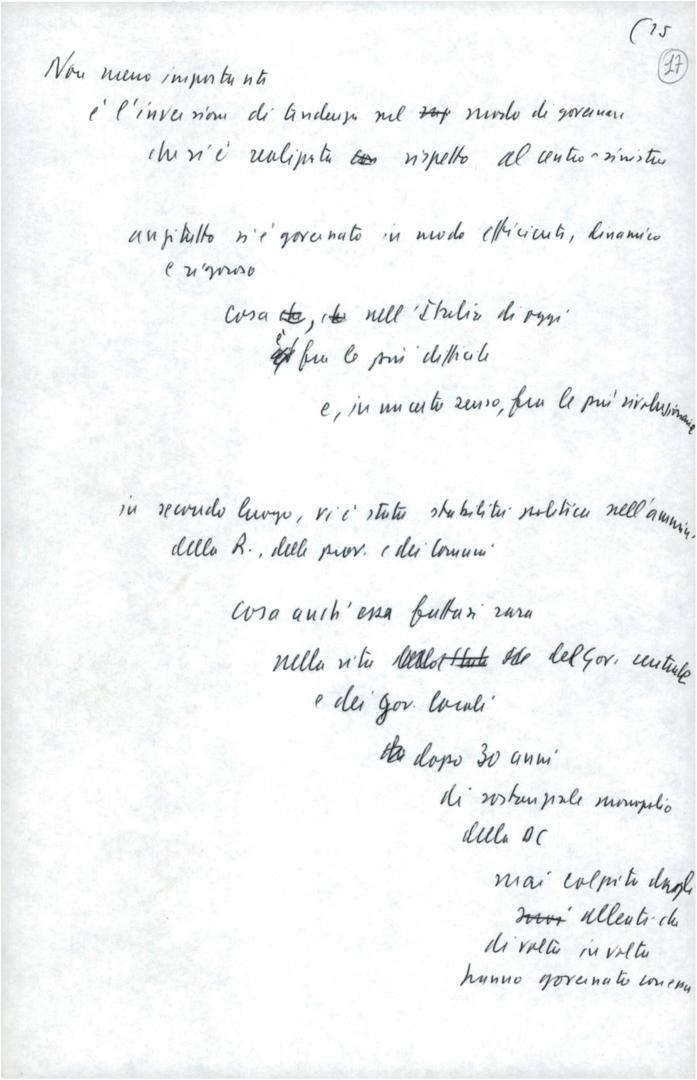 (25
17
Non meno importante
è l'inversione di tendenza nel modo di governare
che si è realizzata rispetto al centro-sinistra
anzitutto si è governato in modo efficiente, dinamico
e rigoroso
cosa, nell'Italia di oggi
è fra le più difficili
e, in un certo senso, fra le più rivoluzionarie
in secondo luogo, vi è stata stabilità politica nell'ammin.
della R., delle prov. e dei Comuni
cosa anch'essa fattasi rara
nella vita del Gov. centrale
e dei gov. locali
dopo 30 anni
di sostanziale monopolio
della DC
mai colpita dagli
alleati che
di volta in volta
hanno governato con essa